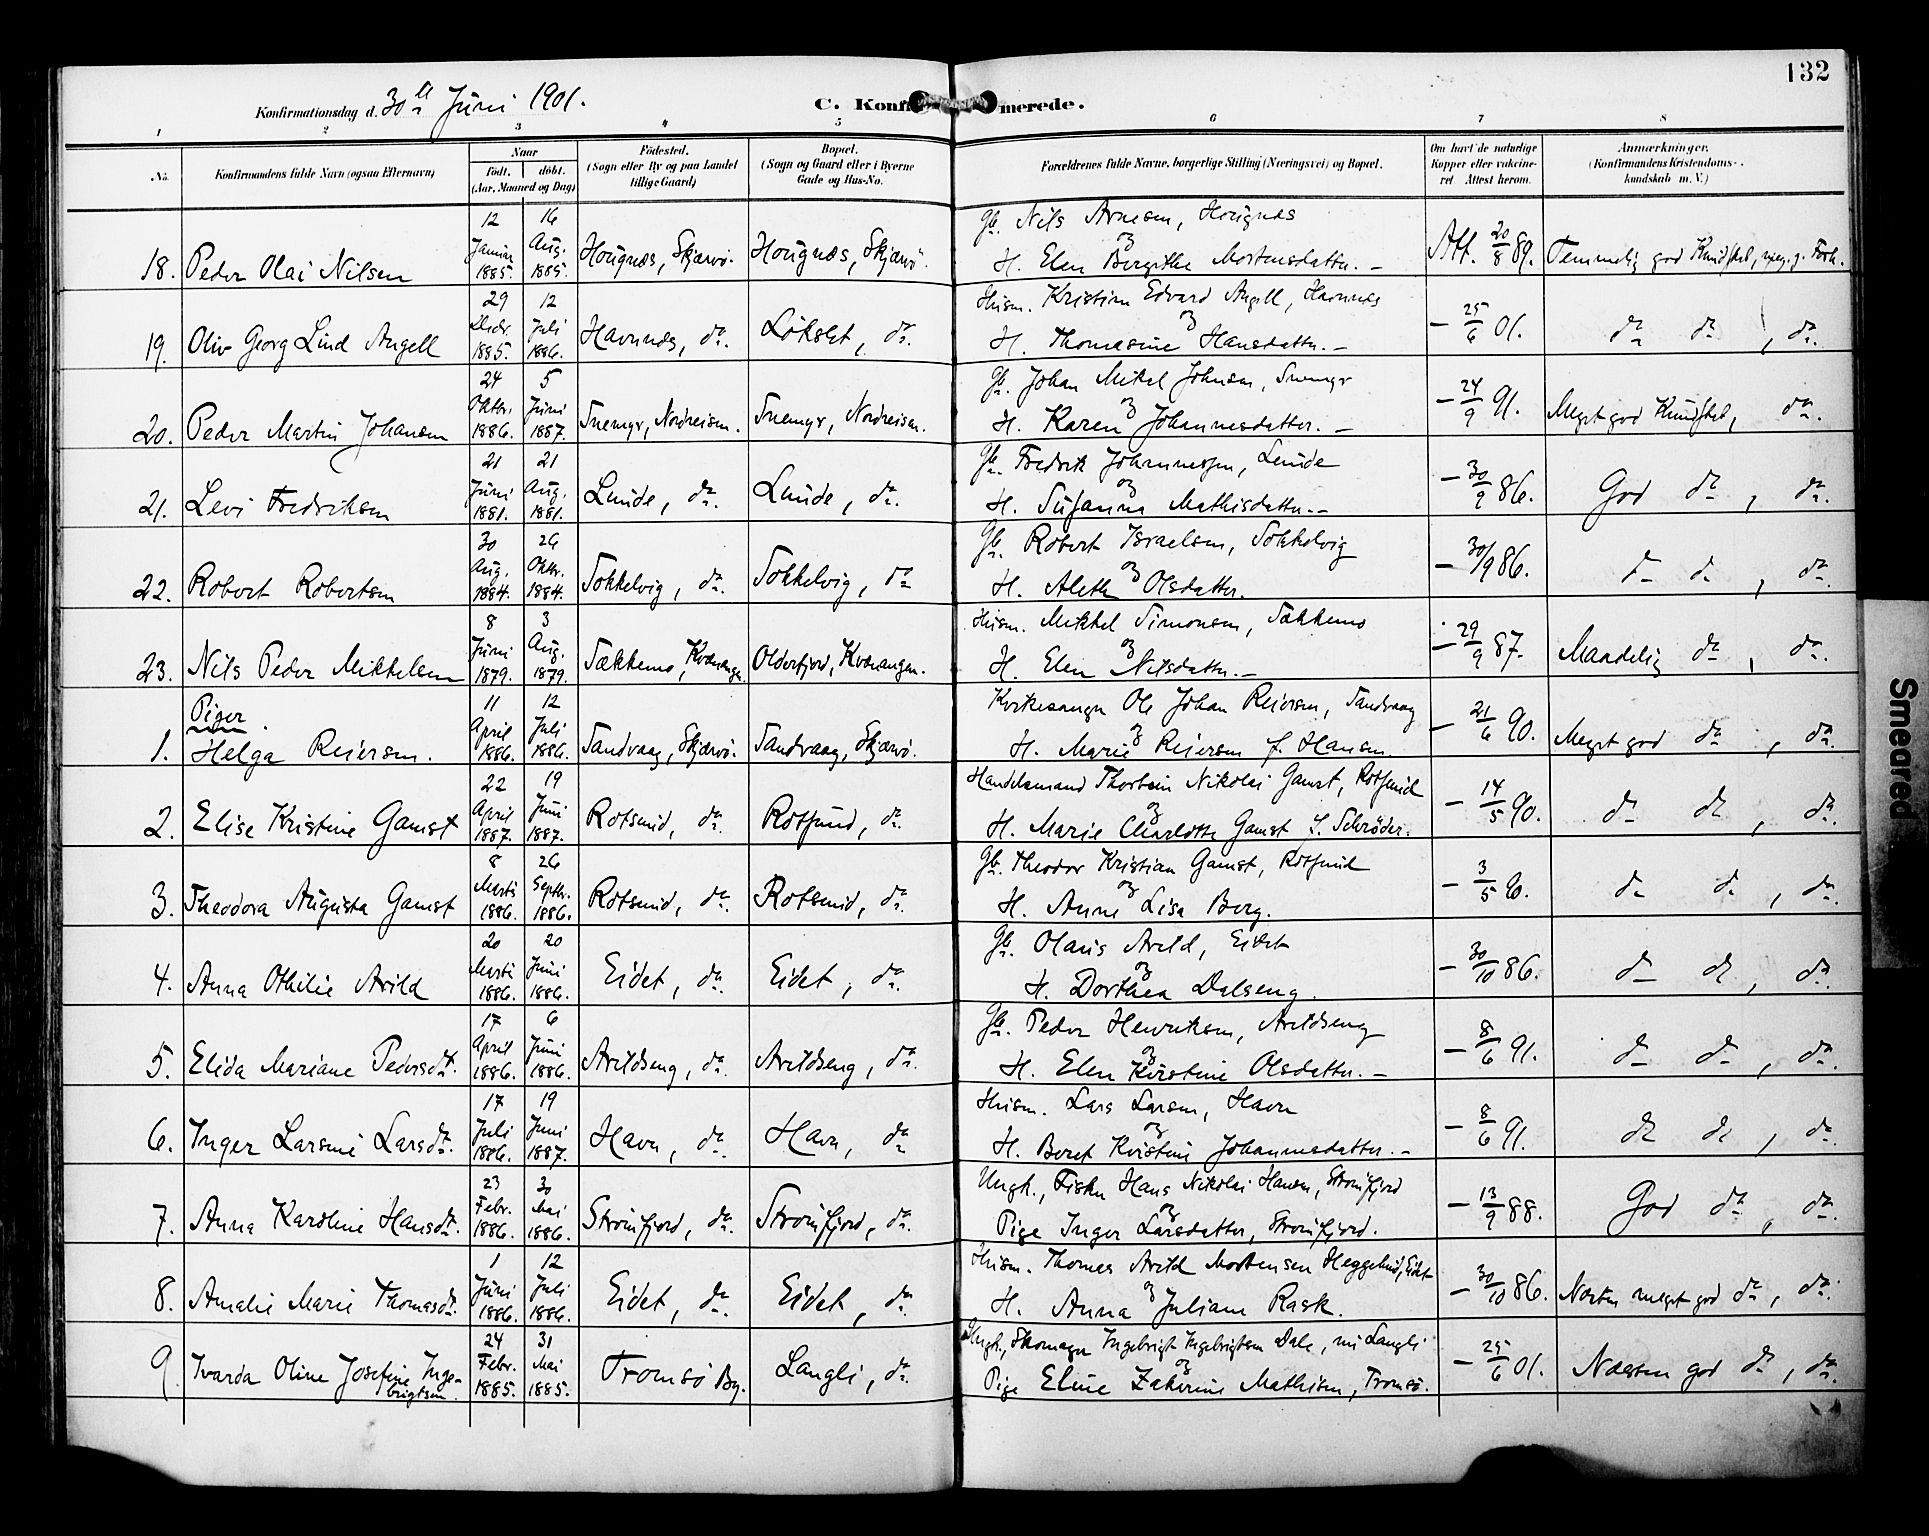 132
Konfirmationsdag d. 30te Juni 1901.
C. Konfi merede.
1 2 3 4 5 6 7 8
No.
Konfirmandens fulde Navn (ogsaa Efternavn)
Naar
født. døbt.
(Aar, Maaned og Dag)
Födested.
(Sogn eller By og paa Landet
tillige Gaard)
Bopæl.
(Sogn og Gaard eller i Byerne
Gade og Hus-No.
Forældrenes fulde Navne, borgerlige Stilling (Næringsvei) og Bopæl.
Om havt de naturlige
Kopper eller vakcine-
ret Attest herom.
Anmærkninger.
(Konfirmandens Kristendoms-
kundskab m. V.)
18. Peder Olai Nilsen
12 Januar 1885. 16 Aug. 1885.
Hougnæs, Skjærvö. Hougnæs, Skjærvö.
Gb. Nils Arnesen, Hougnæs
og
H. Elen Bergithe Mortensdatter. –
Att. 20/8 89. Temmelig god Kundskab, meg. g. Forh.
19. Oliv Georg Lind Angell
29 Decbr. 1885. 12 Juli 1886.
Havnnæs, do. Løkslet, do.
Husm. Kristian Edvard Angell, Havnnæs
og
H. Thomasine Hansdatter. –
– 25/6 01. do do, do.
20. Peder Martin Johansen
24 Oktbr. 1886. 5 Juni 1887.
Snemyr, Nordreisen. Snemyr, Nordreisen.
Gb. Johan Mikal Johnsen, Snemyr
og
H. Karen Johannesdatter. –
– 24/9 91. Meget god Kundskab, do.
21. Levi Fredriksen
21 Juni 1881. 21 Aug. 1881.
Lunde, do. Lunde, do.
Gb. Fredrik Johannessen, Lunde
og
H. Susanna Mathisdatter. –
– 30/9 86. God do, do.
22. Robert Robertsen
30 Aug. 1884. 26 Oktbr. 1884.
Sokkelvig, do. Sokkelvig, do
Gb. Robert Israelsen, Sokkelvig
og
H. Alethe Olsdatter.
– 30/9 86. do do, do.
23. Nils Peder Mikkelsen
8 Juni 1879. 3 Aug. 1879.
Sækkemo, Kvænangen. Olderfjord, Kvænangen.
Husm. Mikkel Simonsen, Sækkemo
og
H. Elen Nilsdatter. –
– 29/9 87. Maadelig do, do.
Piger.
1. Helga Reiersen.
11 April 1886. 12 Juli 1886.
Sandvaag, Skjærvö. Sandvaag, Skjærvö.
Kirkesanger Ole Johan Reiersen, Sandvaag
og
H. Marie Reiersen f. Hansen
– 21/6 90. Meget god do, do.
2. Elise Kristine Gamst
22 April 1887. 19 Juni 1887.
Rotsund, do. Rotsund, do.
Handelsmand Thorstein Nikolai Gamst, Rotsund
og
H. Marie Charlotte Gamst f. Schrøder.
– 14/5 90. do do, do.
3. Theodora Augusta Gamst
8 Marts 1886. 26 Septbr. 1886.
Rotsund, do. Rotsund, do.
Gb. Theodor Kristian Gamst, Rotsund
og
H. Anne Lisa Berg.
– 3/5 90. do do, do.
4. Anna Othilie Arild
20 Marts 1886. 20 Juni 1886.
Eidet, do. Eidet, do.
Gb. Olaus Arild, Eidet
og
H. Dorthea Dalseng.
– 30/10 86. do do, do.
5. Elida Mariane Pedersdt.
17 April 1886. 6 Juni 1886.
Arildseng, do. Arildseng, do.
Gb. Peder Henriksen, Arildseng
og
H. Elen Kirstine Olsdatter. –
– 8/6 91. do do, do.
6. Inger Larsine Larsdt.
17 Juli 1886. 19 Juni 1887.
Havn, do. Havn, do
Husm. Lars Larsen, Havn
og
H. Beret Kristine Johannesdatter. –
– 8/6 91. do do, do.
7. Anna Karoline Hansdt.
23 Febr. 1886. 30 Mai 1886.
Straumfjord, do. Straumfjord, do.
Ungk., Fisker Hans Nikolai Hansen, Straumfjord
og
Pige Inger Larsdatter, Straumfjord.
– 13/9 88. God do, do.
8. Amalie Marie Thomasdt.
1 Juni 1886. 12 Juli 1886.
Eidet, do. Eidet, do.
Husm. Thomas Arild Mortensen Heggelund, Eidet
og
H. Anna Juliane Rask.
– 30/10 86. Næsten meget god do, do.
9. Ivarda Oline Josefine Inge-
brigtsen.
24 Febr. 1885. 31 Mai 1885.
Tromsø By. Langli, do.
Ungk., Skomager Ingebrigt Ingebrigtsen Dale, nu Langli
og
Pige Eline Zakarine Mathisen, Tromsø.
– 25/6 01. Næsten god do, do.
Smeared